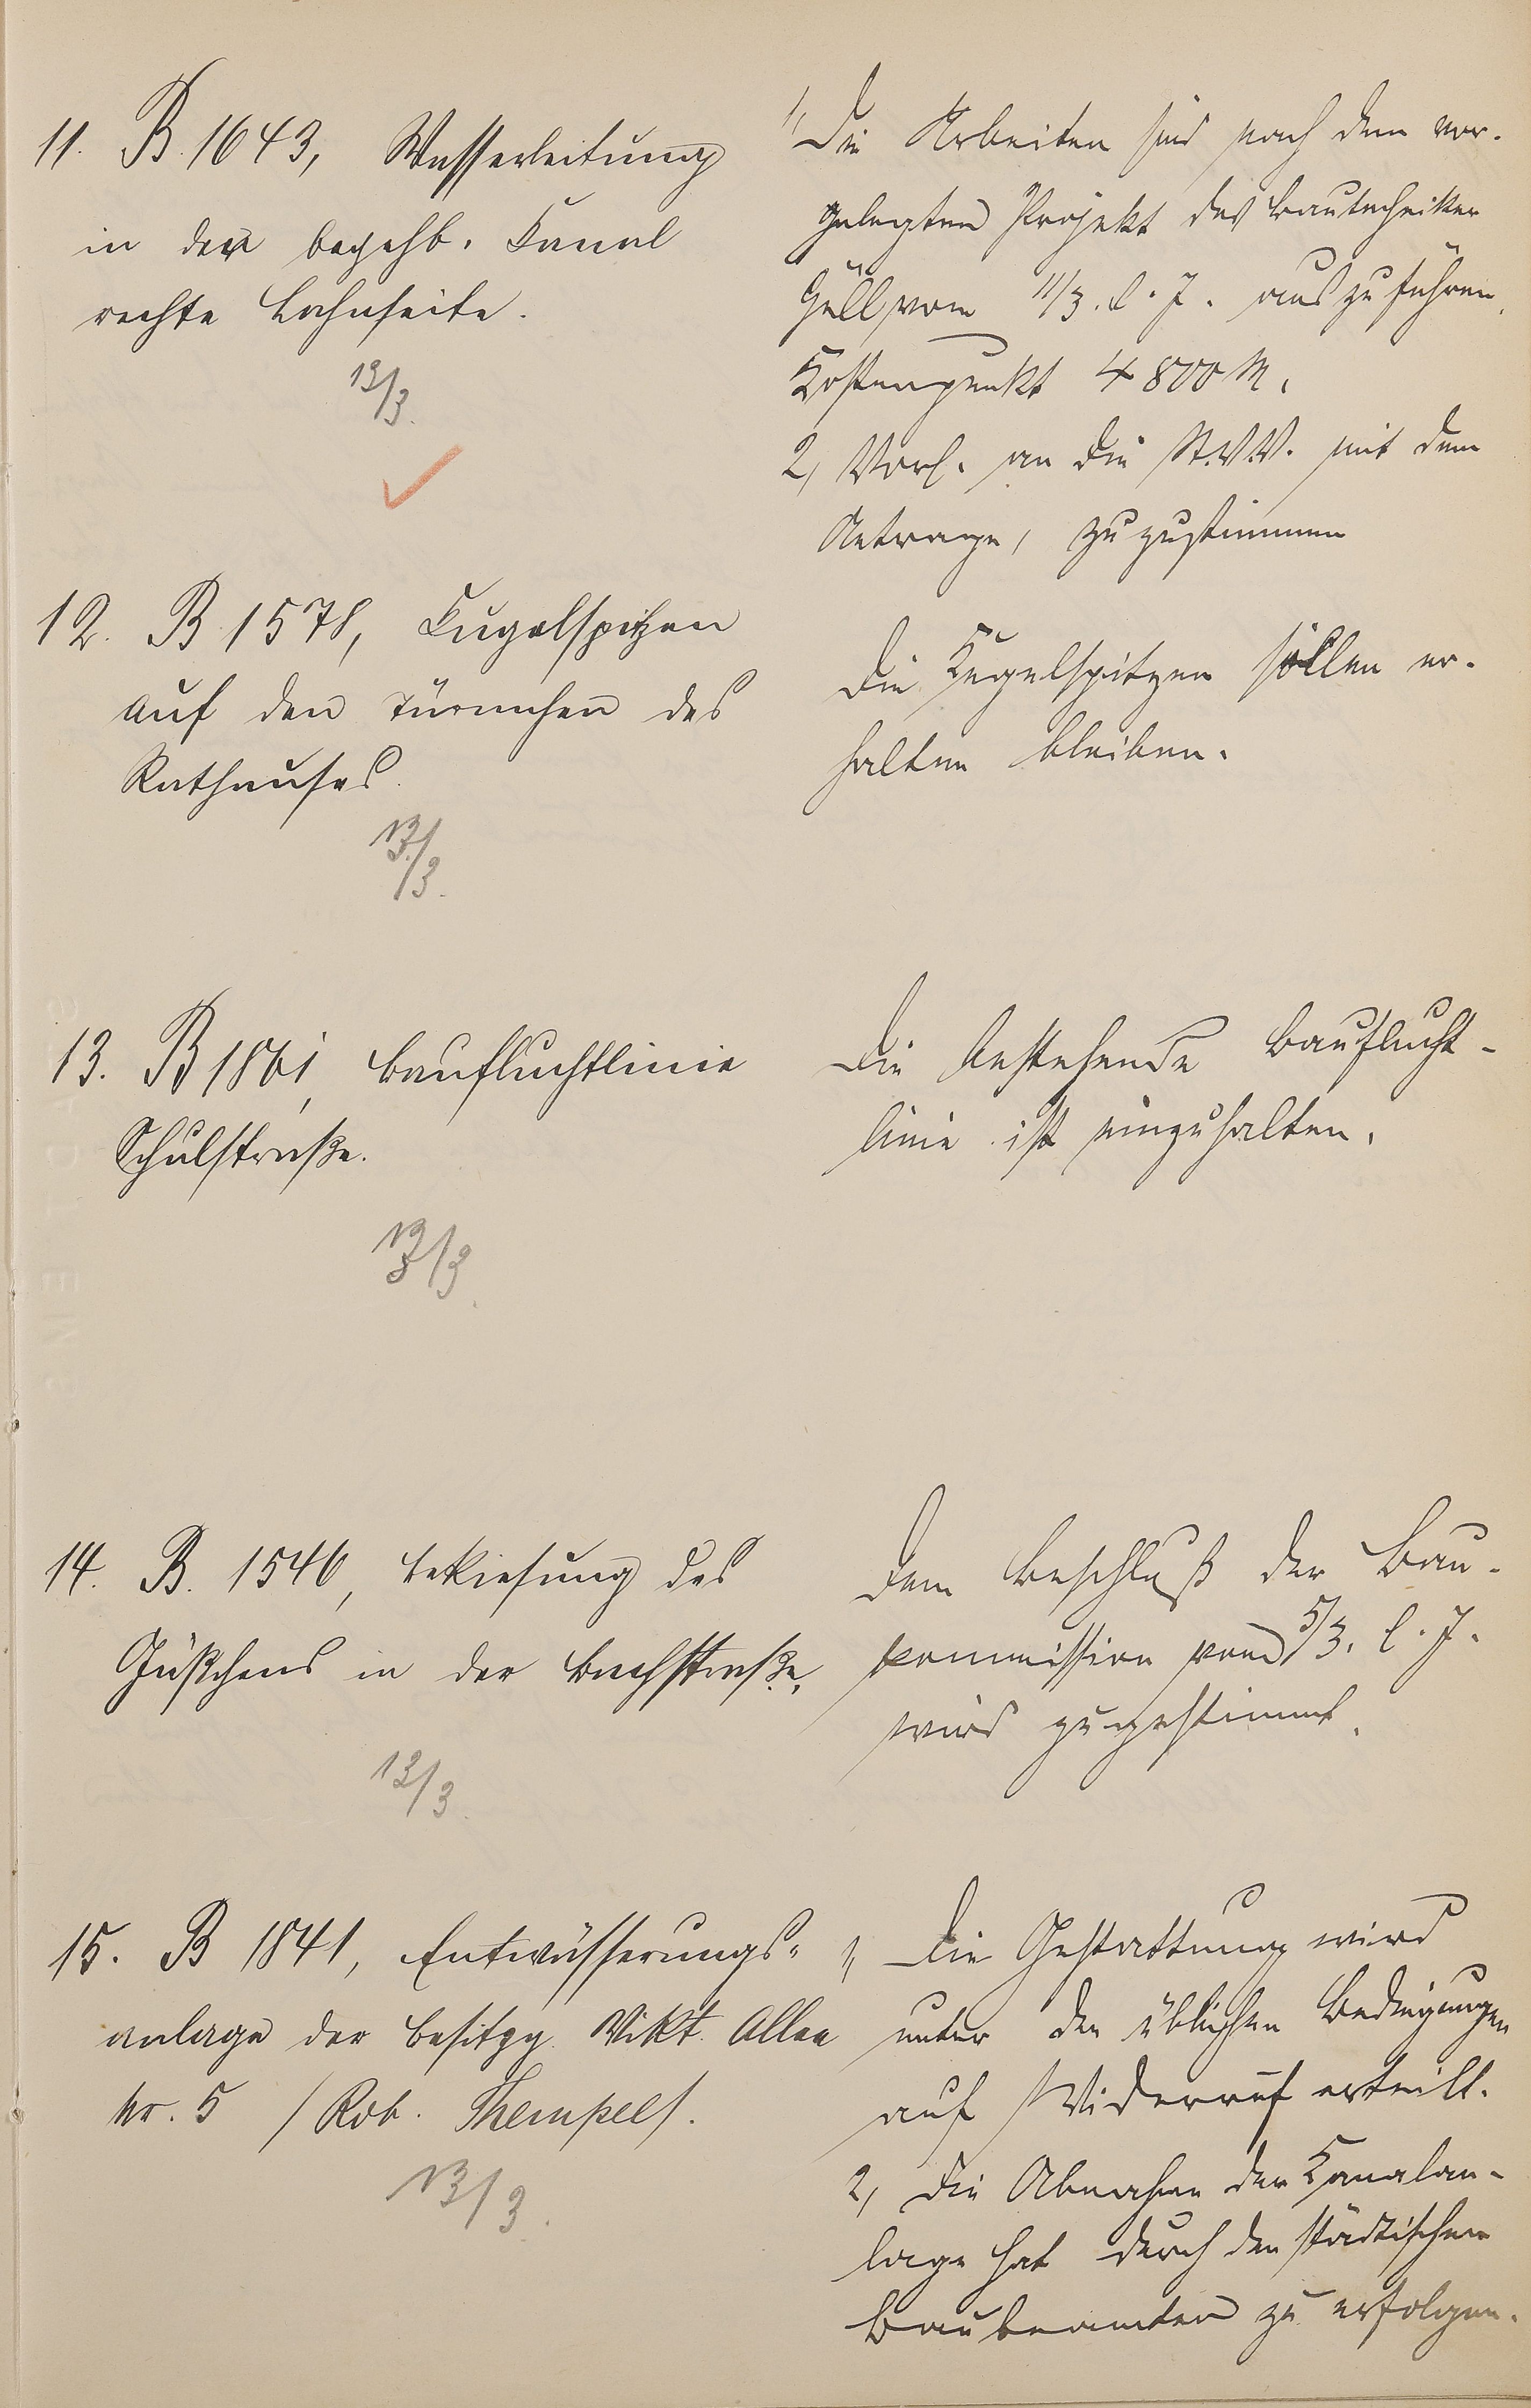 11. B. 1643, Wasserleitung
in der begehb. Kanal
rechte Lahnseite.
13/3.
1, Die Arbeiten sind nach dem vor-
gelegten Projekt des Bautechniker
Güll vom 11/3. l. J. auszuführen,
Kostenpunkt 4800 M.
2, Vorl. an die St.V.V. mit dem
Antrage, zuzustimmen
12. B. 1578, Kugelspitzen
auf den Türmchen des
Rathauses.
13/3.
Die Kugelspitzen sollen er-
halten bleiben.
13. B 1861, Baufluchtlinie
Schulstraße.
13/3.
Die bestehende Bauflucht-
linie ist einzuhalten.
14. B. 1546, Bekiesung des
Gäßchens in der Bachstraße.
13/3.
Dem Beschluß der Bau-
kommission vom 5/3. l. J.
wird zugestimmt.
15. B 1841, Entwässerungs-
anlage der Besitzg. Vikt. Allee
Nr. 5 /Rob. Thempel/.
13/3.
1, Die Gestattung wird
unter den üblichen Bedingungen
auf Widerruf erteilt.
2, Die Abnahme der Kanalan-
lage hat durch den städtischen
Baubeamten zu erfolgen.